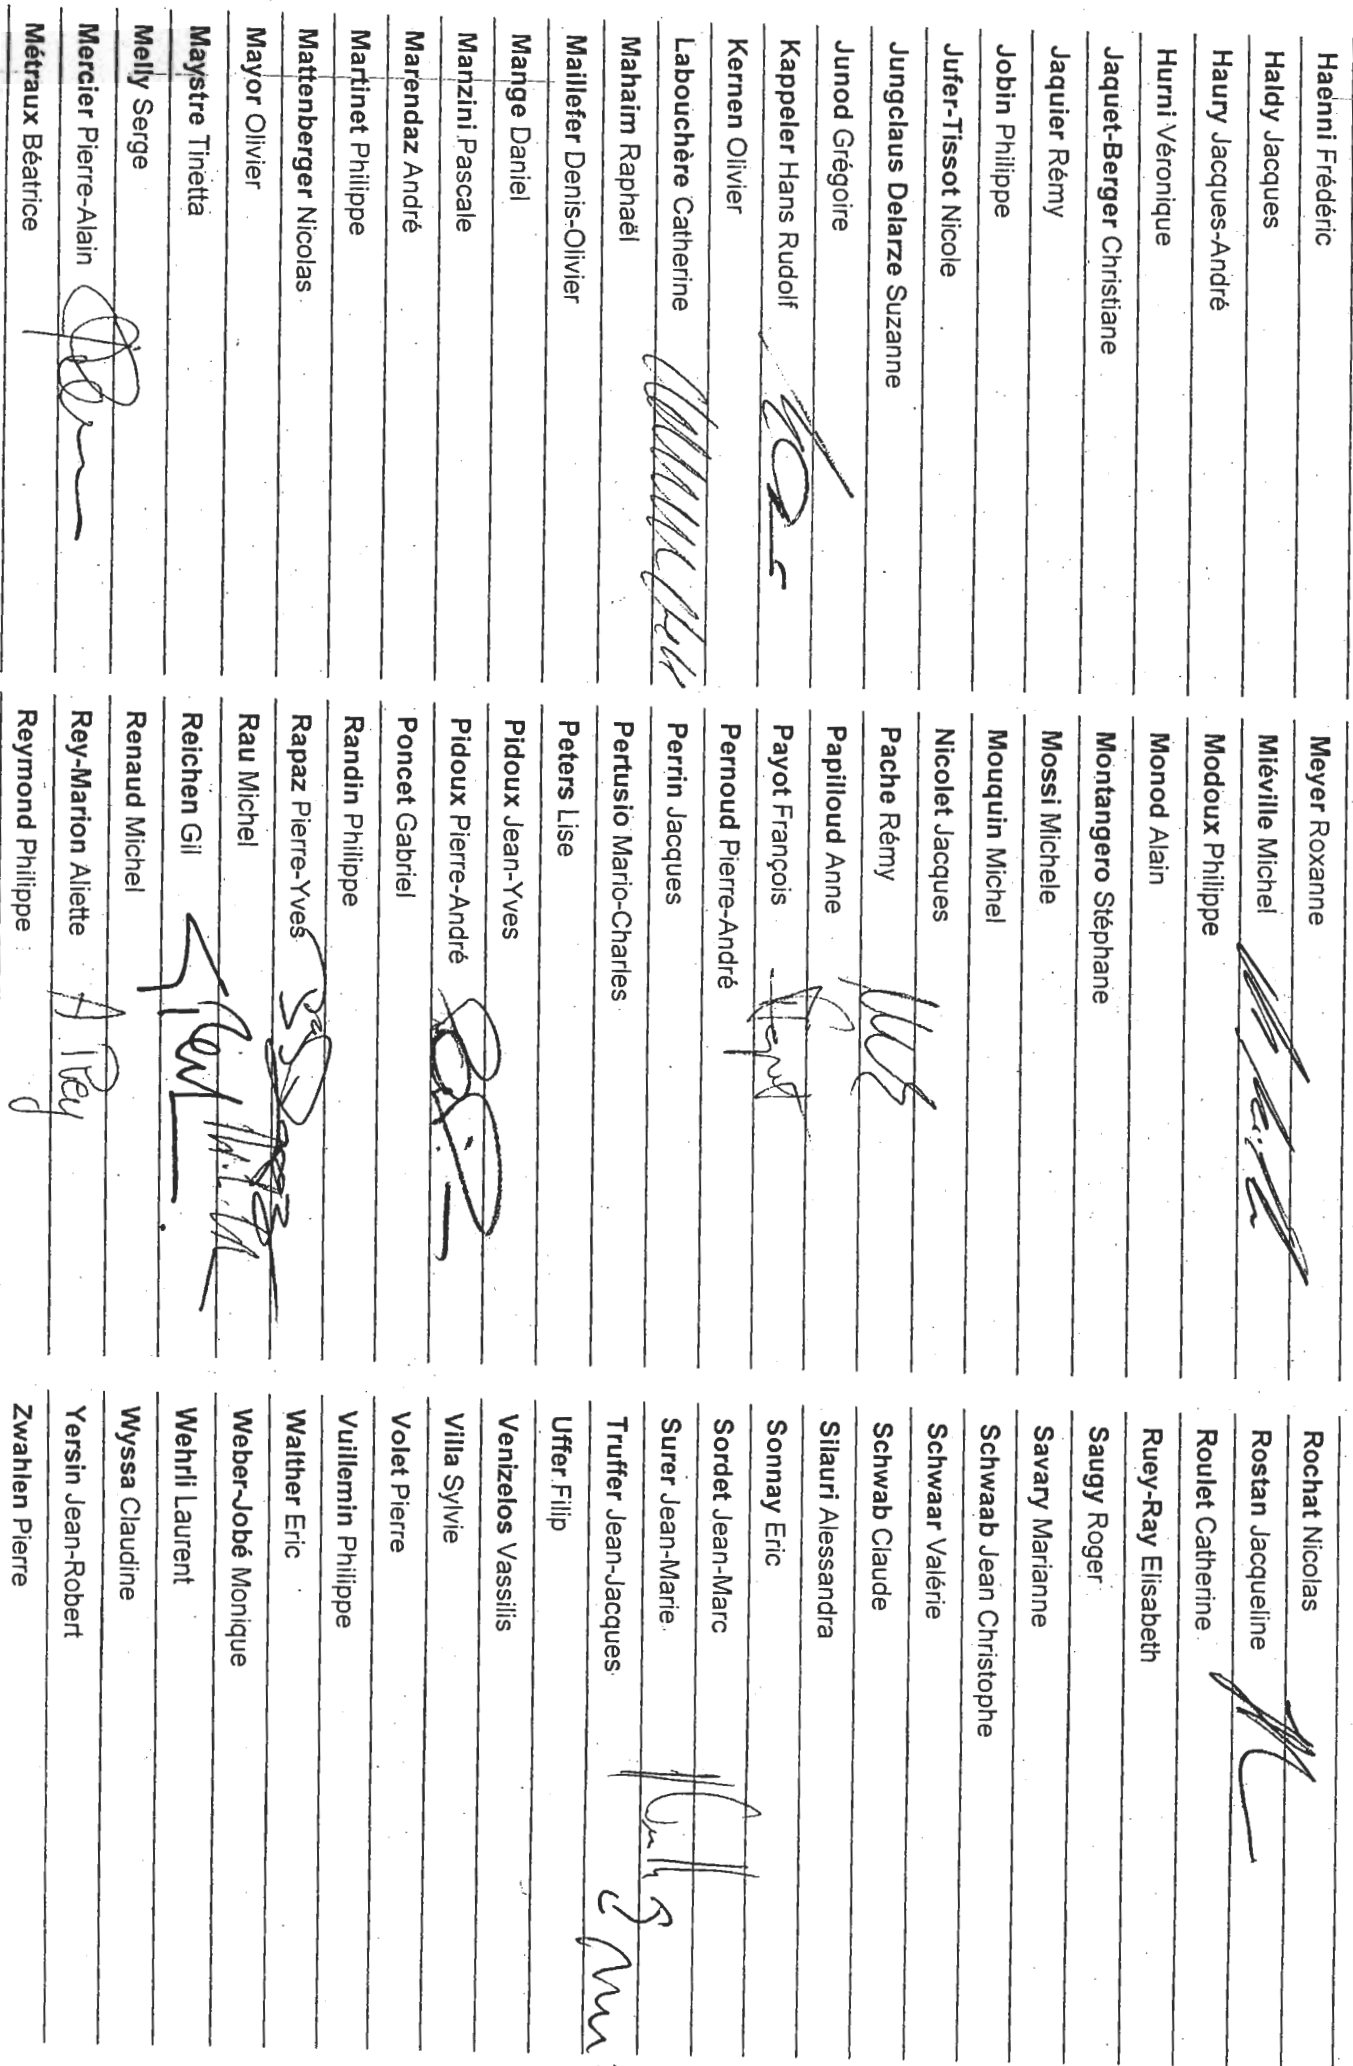 Haenni Frédéric
Haldy Jacques
Haury Jacques-André
Hurni Véronique
Jaquet-Berger Christiane
Jaquier Rémy
Jobin Philippe
Jufer-Tissot Nicole
Jungclaus Delarze Suzanne
Junod Grégoire
Kappeler Hans Rudolf
Kernen Olivier
Labouchère Catherine
Mahaim Raphaël
Maillefer Denis-Olivier
Mange Daniel
Manzini Pascale
Marendaz André
Martinet Philippe
Mattenberger Nicolas
Mayor Olivier
Maystre Tinetta
Melly Serge
Mercier Pierre-Alain
Métraux Béatrice
Meyer Roxanne
Miéville Michel
Modoux Philippe
Monod Alain
Montangero Stéphane
Mossi Michele
Mouquin Michel
Nicolet Jacques
Pache Rémy
Papilloud Anne
Payot François
Pernoud Pierre-André
Perrin Jacques
Pertusio Mario-Charles
Peters Lise
Pidoux Jean-Yves
Pidoux Pierre-André
Poncet Gabriel
Randin Philippe
Rapaz Pierre-Yves
Rau Michel
Reichen Gil
Renaud Michel
Rey-Marion Aliette A Rey
Reymond Philippe
Rochat Nicolas
Rostan Jacqueline
Roulet Catherine
Ruey-Ray Elisabeth
Saugy Roger
Savary Marianne
Schwaab Jean Christophe
Schwaar Valérie
Schwab Claude
Silauri Alessandra
Sonnay Eric
Sordet Jean-Marc
Surer Jean-Marie
Truffer Jean-Jacques
Uffer Filip
Venizelos Vassilis
Villa Sylvie
Volet Pierre
Vuillemin Philippe
Walther Eric
Weber-Jobé Monique
Wehrli Laurent
Wyssa Claudine
Yersin Jean-Robert
Zwahlen Pierre